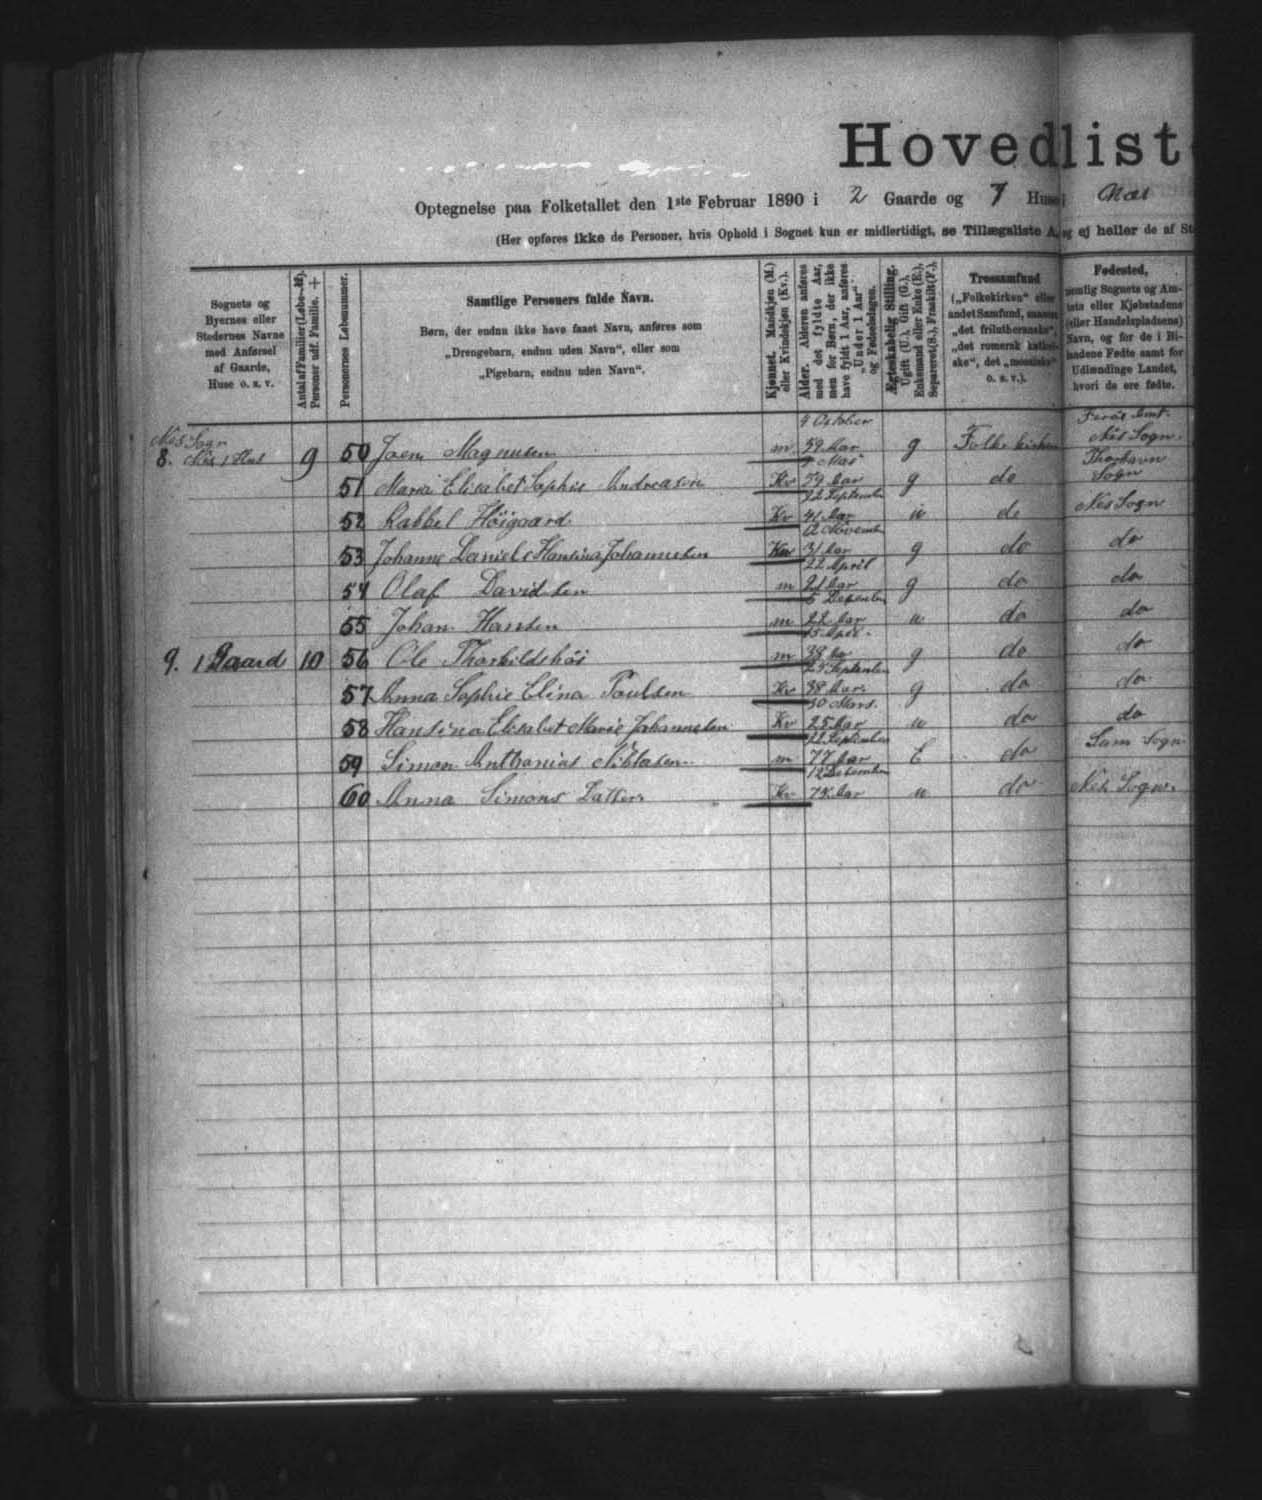 Hovedliste
Optegnelse paa Folketallet den 1ste Februar 1890 i 2 Gaarde og 7 Huse i Næs
(Her opføres ikke de Personer, hvis Ophold i Sognet kun er midlertidigt, se Tillægsliste A, og ej heller de af St
Sognets og Byernes eller Stedernes Navne med Anførsel af Gaarde, Huse o. s. v.
Antal af Familier (Løbe-№). Personer udf. Familie. +
Personernes Løbenummer.
Samtlige Personers fulde Navn.
Børn, der endnu ikke have faaet Navn, anføres som
„Drengebarn, endnu uden Navn“, eller som
„Pigebarn, endnu uden Navn“.
Kjønnet. Mandkjøn (M.) eller Kvindekjøn (Kv.).
Alder. Alderen anføres med det fyldte Aar, men for Børn, der ikke have fyldt 1 Aar, anføres „Under 1 Aar“ og Fødselsdagen.
Ægteskabelig Stilling. Ugift (U.), Gift (G.), Enkemand eller Enke (E.), Separeret (S.), Fraskilt (F.).
Trossamfund („Folkekirken“ eller andet Samfund, saasom „det frilutheranske“, „det romersk katholske“, det „mosaiske“ o. s. v.).
Fødested, nemlig Sognets og Amtets eller Kjøbstadens (eller Handelspladsens) Navn, og for de i Bilandene Fødte samt for Udlændinge Landet, hvori de ere fødte.
4 October Færøe Amt.
Nes Sogn
8. Nes 1 Hus 9 50 Joen Magnusen m 59 Aar g Folkekirken Nes Sogn.
51 Maria Elisabet Sophie Andreasen Kv 59 Aar g do Thorshavn Sogn
22 September
52 Rabbel Höigaard Kv 41 Aar u do Nes Sogn
12 November
53 Johanne Daniele Hansina Johannesen Kv 31 Aar g do do
22 April
54 Olaf Davidsen m 21 Aar g do do
55 Johan Hansen m 22 Aar u do do
9. 1 Gaard 10 56 Ole Thorkildshöi m 38 Aar g do do
September
57 Anna Sophie Elina Poulsen Kv 38 Aar g do do
30 Mars.
58 Hansina Elisabet Marie Johannesen Kv 25 Aar u do do
22 September
59 Simon Anthonius Niklasen m 77 Aar E do Sogn
12 December
60 Anna Simons Datter Kv 74 Aar u do Nes Sogn.